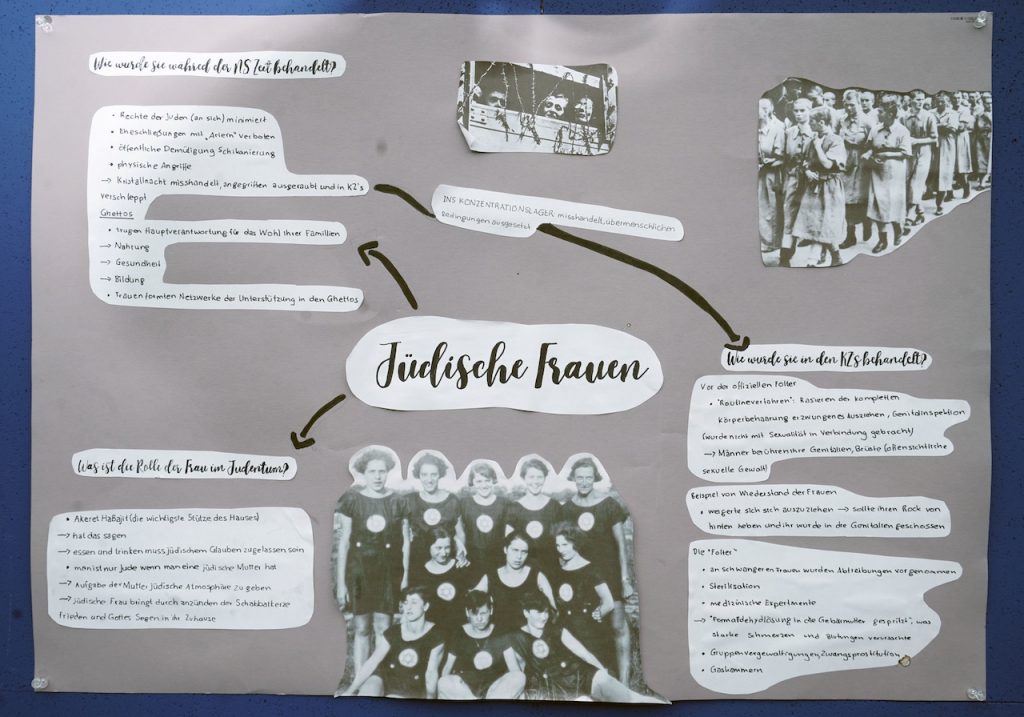 Wie wurde sie wahred der NS Zeit behandelt?
• Rechte der Juden (an sich) minimiert
• Eheschließungen mit „Ariern" verboten
• öffentliche Demütigung Schikanierung
→ physische Angriffe
→ Kristallnacht misshandelt, angegriffen ausgeraubt und in KZ's
verschleppt
Ghettos
• trugen Hauptverantwortung für das Wohl ihrer Familien
→ Nahrung
→ Gesundheit
→ Bildung
• Frauen formten Netzwerke der Unterstützung in den Ghettos
INS KONZENTRATIONSLAGER misshandelt, übermenschlichen
Bedingungen ausgesetzt
Jüdische Frauen
Was ist die Rolle der Frau im Judentum?
• Akeret HaBajit (die wichtigste Stütze des Hauses)
→ hat das sagen
→ essen und trinken muss jüdischem Glauben zugelassen sein
• man ist nur jude wenn man eine jüdische Mutter hat
→ Aufgabe der Mutter jüdische Atmosphäre zu geben
→ jüdische Frau bringt durch anzünden der Schabbatkerze
Frieden und Gottes Segen in ihr Zuhause
Wie wurde sie in den KZs behandelt?
Vor der offiziellen Folter
• "Routineverfahren": Rasieren der kompletten
Körperbehaarung erzwungenes Ausziehen, Genitalinspektion
(wurde nicht mit Sexualität in Verbindung gebracht)
→ Männer berühren ihre Genitalien, Brüste (offensichtliche
sexuelle Gewalt)
Beispiel von Wiederstand der Frauen
• weigerte sich sich auszuziehen → sollte ihren Rock von
hinten heben und ihr wurde in die Genitalien geschossen
Die "Folter"
• an schwangeren Frauen wurden Abtreibungen vorgenommen
• Sterilisation
• medizinische Experimente
→ "Formaldehydlösung in die Gebärmutter gespritzt", was
starke Schmerzen und Blutungen verursachte
• Gruppenvergewaltigungen, Zwangsprostitution
• Gaskammern